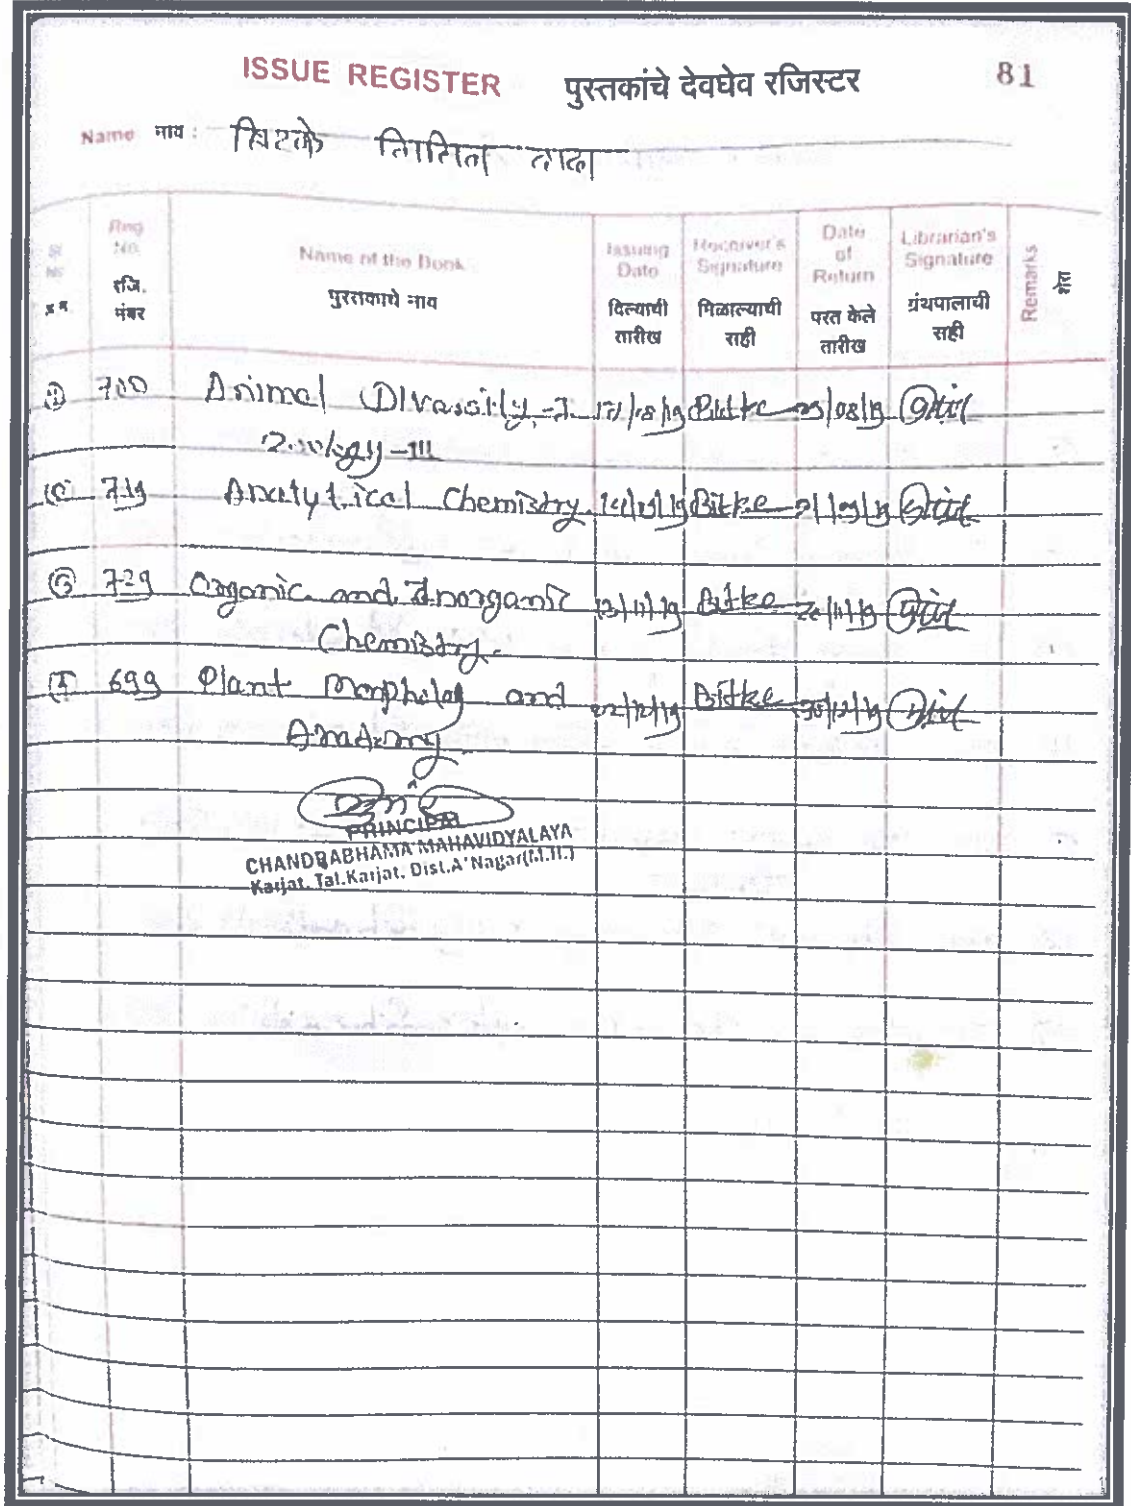 ISSUE REGISTER पुस्तकांचे देवघेव रजिस्टर 81
Name नाव : बिटके नितिन दादा
Sr. No. अ.नं. Reg. No. रजि. नंबर Name of the Book पुस्तकाचे नाव Issuing Date दिल्याची तारीख Receiver's Signature मिळाल्याची सही Date of Return परत केले तारीख Librarian's Signature ग्रंथपालाची सही Remarks शेरा
700 Animal Diversity-I Bitke
Zoology-III
719 Analytical Chemistry Bitke
729 Organic and Inorganic 13/11/19 Bitke 20/11/19
Chemistry
699 Plant Morpholoy and 22/12/19 Bitke 30/12/19
Anatomy
PRINCIPAL
CHANDRABHAMA MAHAVIDYALAYA
Karjat. Tal.Karjat. Dist.A'Nagar(M.H.)